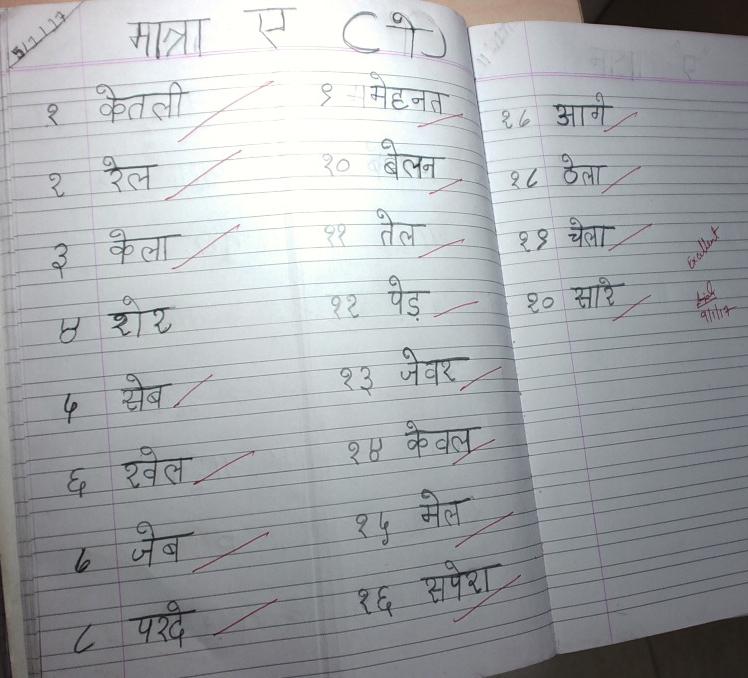 5/7/17
मात्रा ए ( े )
१ केतली
२ रेल
३ केला
४ शेर
५ सेब
६ खेल
७ जेब
८ परदे
९ मेहनत
१० बेलन
११ तेल
१२ पेड़
१३ जेवर
१४ केवल
१५ मेल
१६ सपेरा
१७ आगे
१८ ठेला
१९ चेला
२० सारे
Excellent
9/7/17